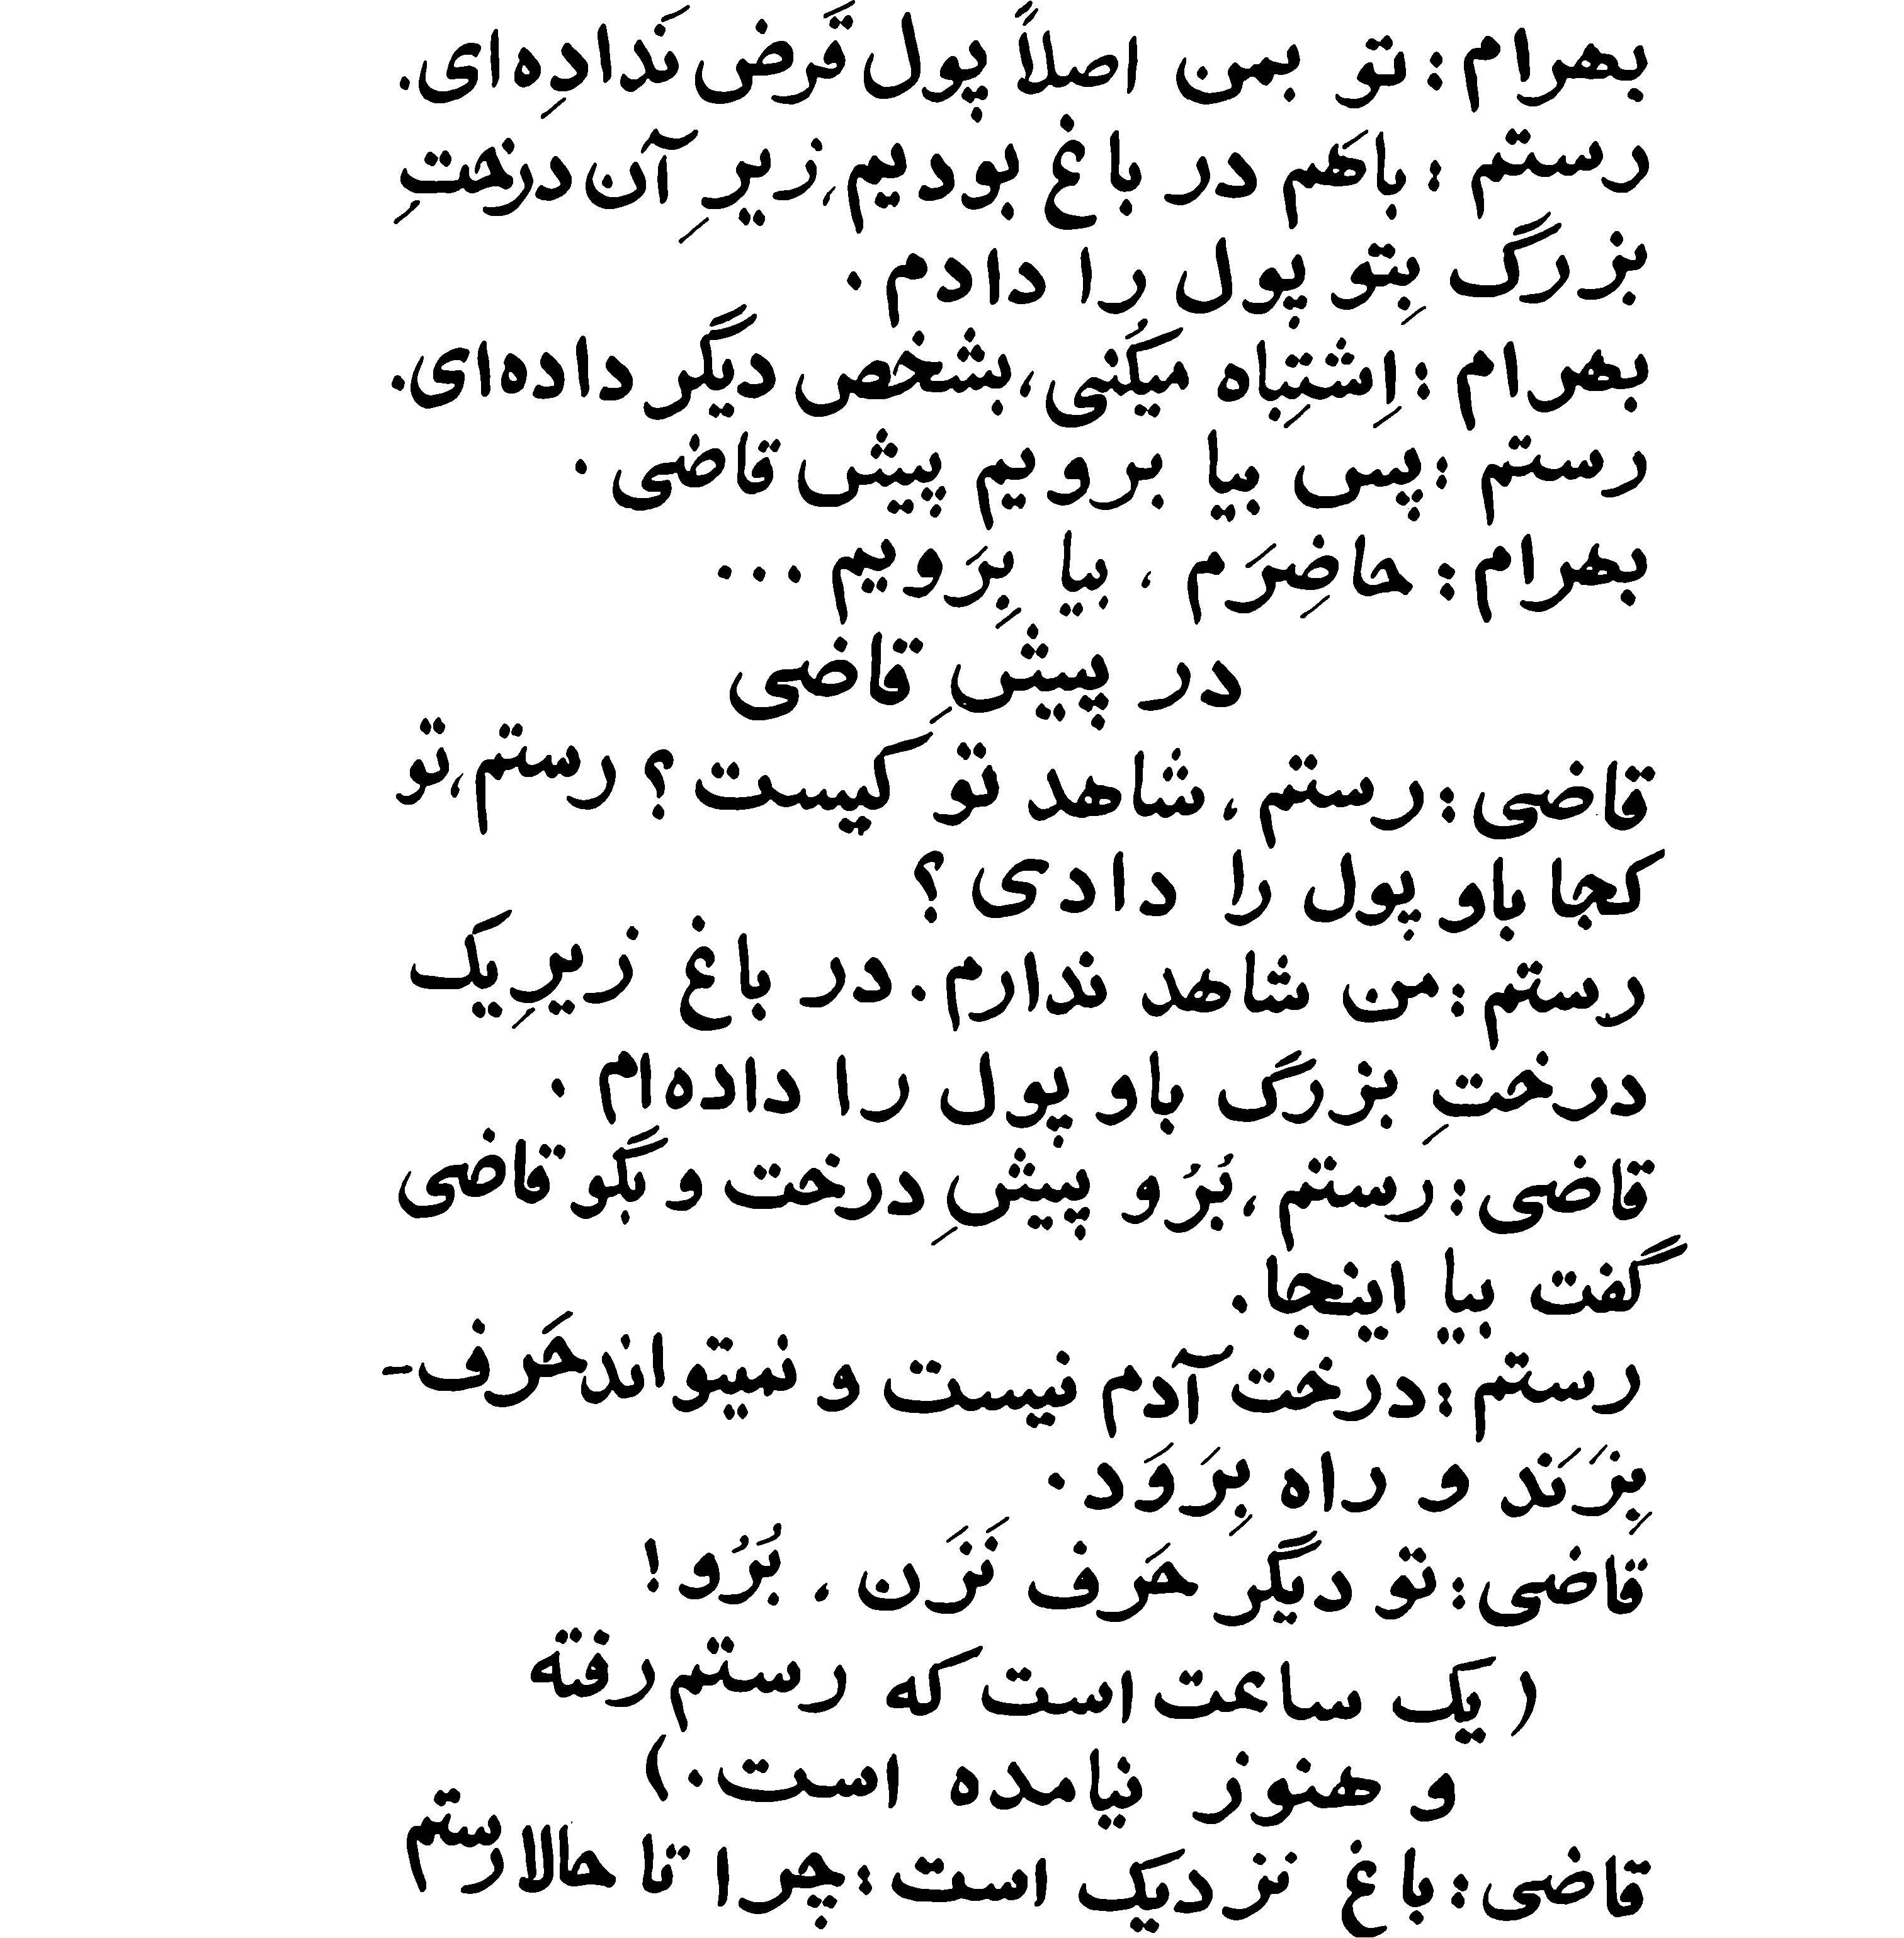 بهرام : تو بمن اصلاً پول قَرض نَدادِه‌ای.
رستم : باهَم در باغ بودیم، زیرِ آن درختِ
بزرگ بِتو پول را دادم .
بهرام : اِشتِباه میکُنی، بشخص دیگر داده‌ای.
رستم : پس بیا برویم پیش قاضی .
بهرام : حاضِرَم ، بیا بِرَویم ...
در پیشِ قاضی
قاضی : رستم ، شاهد تو کیست ؟ رستم ، تو
کجا باو پول را دادی ؟
رستم : من شاهد ندارم . در باغ زیرِ یک
درختِ بزرگ باو پول را داده‌ام .
قاضی : رستم ، بُرُو پیشِ درخت و بگو قاضی
گفت بیا اینجا.
رستم : درخت آدم نیست و نمیتواند حَرف-
بِزَنَد و راه بِرَوَد .
قاضی : تو دیگر حَرف نَزَن ، بُرُو !
( یک ساعت است که رستم رفته
و هنوز نیامده است . )
قاضی : باغ نزدیک است : چرا تا حالا رستم